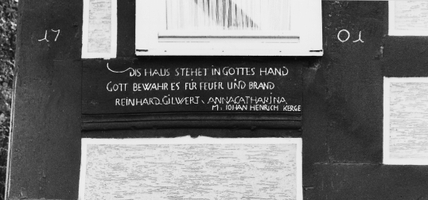 17 01
DIS HAUS STEHET IN GOTTES HAND
GOTT BEWAHR ES FÜR FEUER UND BRAND
REINHARD.GILWERT. ANNACATHARINA
M. IOHAN HENRICH KERGE